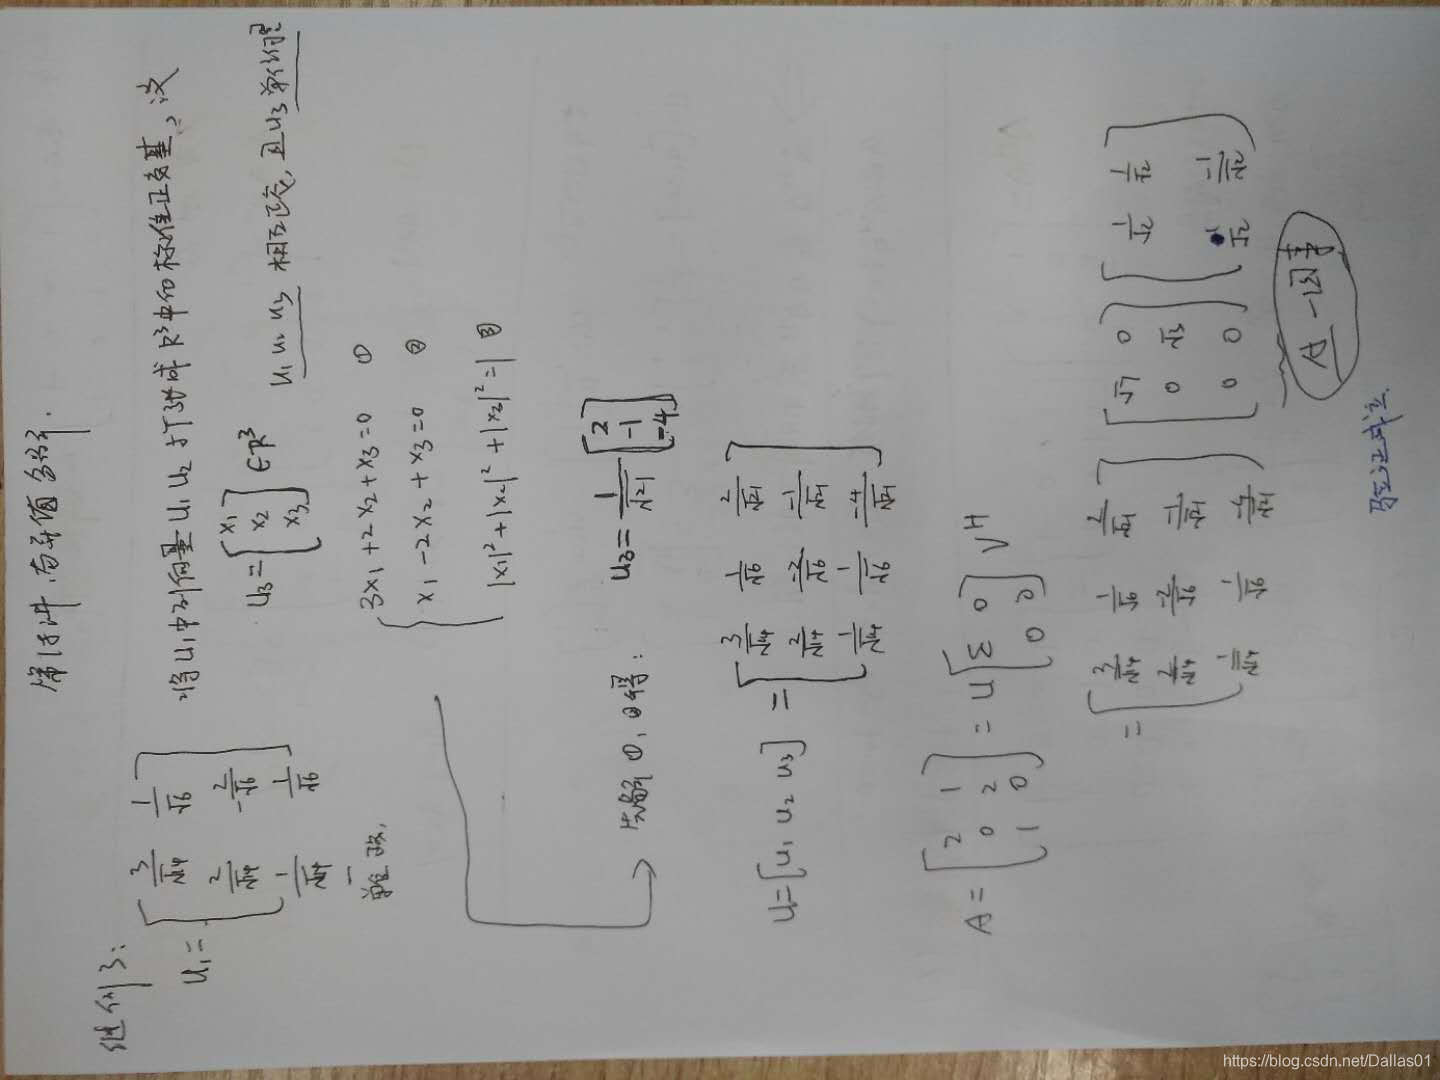 第18讲.奇异值分解.
继例3:
U₁= [3/√14 1/√6; 2/√14 -2/√6; 1/√14 1/√6]
将U₁中列向量 u₁ u₂ 扩张成 R³中的标准正交基,设
u₃= [x₁; x₂; x₃] ∈R³
u₁ u₂ u₃ 相互正交, 且u₃单位化
{ 3x₁+2x₂+x₃=0 ①
x₁-2x₂+x₃=0 ②
|x₁|²+|x₂|²+|x₃|²=1 ③
求解 ①,②得: u₃= 1/√21 [2; -1; -4]
U=[u₁ u₂ u₃] = [3/√14 1/√6 2/√21; 2/√14 -2/√6 -1/√21; 1/√14 1/√6 -4/√21]
A= [2 1; 0 2; 1 0] = U [Σ 0; 0 0] Vᴴ
= [3/√14 1/√6 2/√21; 2/√14 -2/√6 -1/√21; 1/√14 1/√6 -4/√21] [√7 0; 0 √3; 0 0] [1/√2 1/√2; 1/√2 -1/√2]
验证成立
https://blog.csdn.net/Dallas01